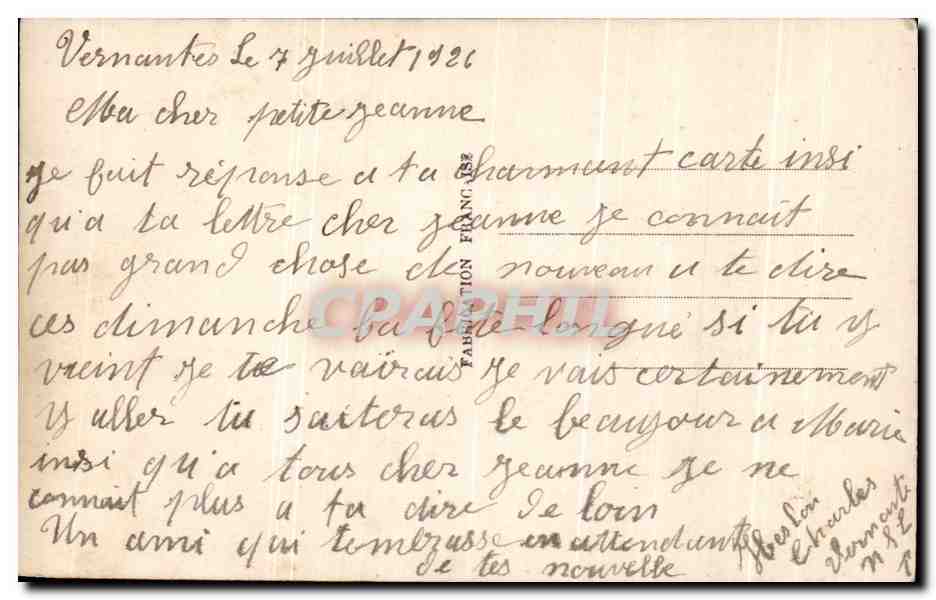 Vernantes Le 7 Juillet 1926
Ma cher petite Jeanne
Je fait réponse a ta charmant carte insi
qu'a ta lettre cher Jeanne Je connait
pas grand chose de nouveau a te dire
ces dimanche la fête longué si tu y
vieint Je te vairais Je vais certainement
y aller tu saiteras le beaujour a Marie
insi qu'a tous cher Jeanne Je ne
connait plus a ta dire de loin
Un ami qui tembrasse en attendant
de tes nouvelle
Charles
Vernante
FABRICATION FRANÇAISE
CPAPHIL